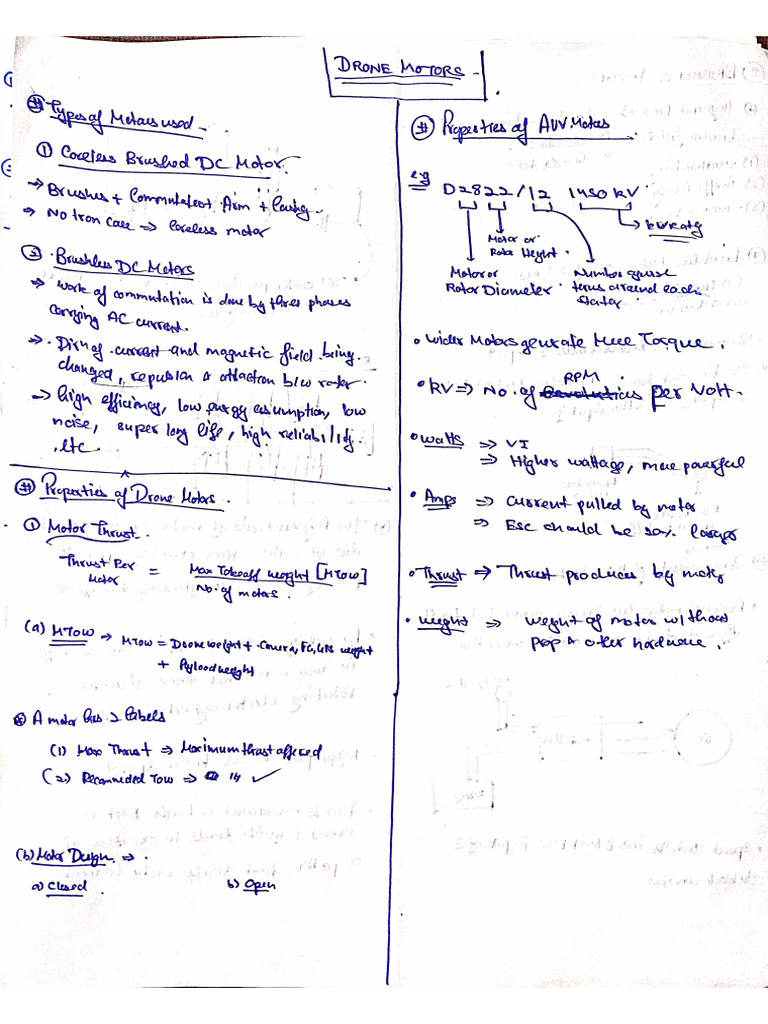 DRONE MOTORS
# Types of Motors used
① Coreless Brushed DC Motor.
→ Brushes + Commutator + Arm + Casing
→ No Iron Core ⇒ Coreless motor
② Brushless DC Motors
→ work of commutation is done by three phases
carrying AC current.
→ Dirn of current and magnetic field being
changed, repulsion & attraction b/w rotor.
→ high efficiency, low energy consumption, low
noise, super long life, high reliability
,etc
# Properties of Drone Motors.
① Motor Thrust.
Thrust Per Motor = Max Takeoff weight [MTOW]
No. of motors.
(a) MTOW → MTOW = Drone weight + Camera, FC, GPS weight
+ Payload weight
A motor has 2 labels
(1) Max Thrust ⇒ Maximum thrust
(2) Recommided Tow ⇒ ✓
(b) Motor Design ⇒
a) Closed b) Open
# Properties of Motors
e.g D2822/12 1450 KV
KV
Motor or
Rotor Height
Motor or
Rotor Diameter
Number
turns around each
stator
• Wider Motors generate More Torque.
RPM
• KV ⇒ No. of per Volt.
• Watts ⇒ VI
⇒ Higher wattage, more powerful
• Amps ⇒ Current pulled by motor
⇒ Esc should be larger
• Thrust ⇒ Thrust produces by motor
• Weight ⇒ Weight of motor without
prop & other hardware.